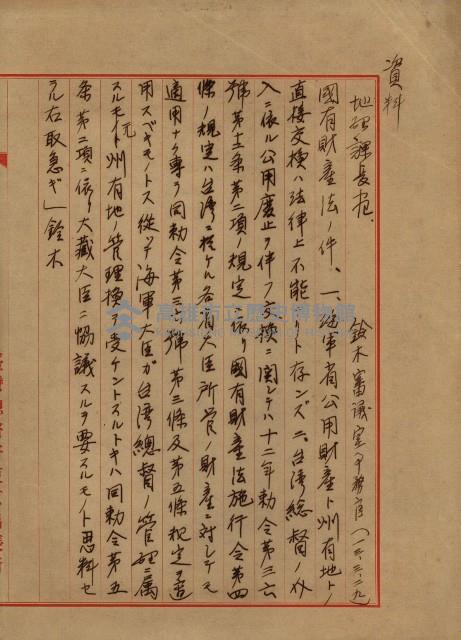 資料
地理課長宛、
鈴木審議室事務官(一三、三、二九)
国有財産法ノ件、一、海軍省公用財産ト州有地トノ
直接交換ハ法律上不能ナリト存ンズ二、台湾総督ノ
入ニ依ル公用廃止ヲ伴フ交換ニ関シテハ十二年勅令第三六
号第十一条第二項ノ規定ニ依リ国有財産法施行令第四
条ノ規定ハ台湾ニ於ケル各省大臣所管ノ財産ニ対シテモ
適用ナク専ラ同勅令第三号第三條及第五條規定ヲ適
用スベキモノトス従ツテ海軍大臣ガ台湾総督ノ管理ニ属
スルモノト元州有地ノ管理換ヲ受ケントスルトキハ同勅令第五
条第二項ニ依リ大蔵大臣ニ協議スルヲ要スルモノト思料セ
ラル右取急ギ」鈴木
高雄市立歷史博物館